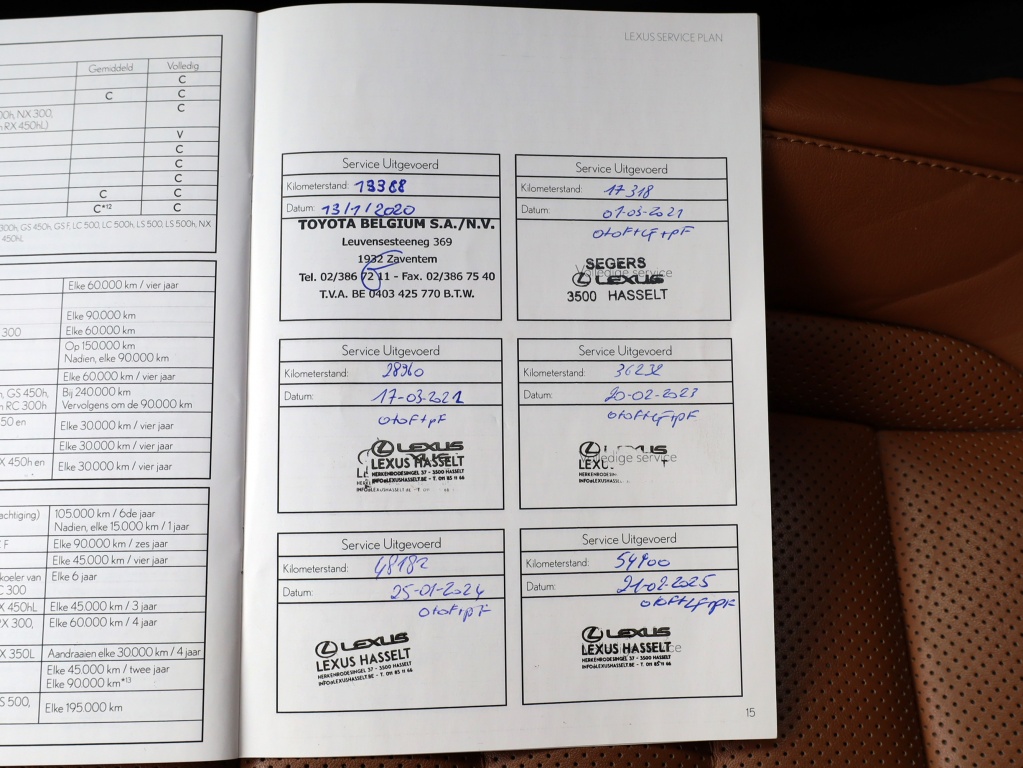 Gemiddeld Volledig
C
C C
C
00h, NX 300,
RX 450hL)
V
C
C
C
C C
C*12 C
300h, GS 450h, GS F, LC 500, LC 500h, LS 500, LS 500h, NX
450hL
Elke 60.000 km / vier jaar
Elke 90.000 km
300 Elke 60.000 km
Op 150.000 km
Nadien, elke 90.000 km
Elke 60.000 km / vier jaar
GS 450h, Bij 240.000 km
RC 300h Vervolgens om de 90.000 km
50 en Elke 30.000 km / vier jaar
Elke 30.000 km / vier jaar
X 450h en Elke 30.000 km / vier jaar
achtiging) 105.000 km / 6de jaar
Nadien, elke 15.000 km / 1 jaar
F Elke 90.000 km / zes jaar
Elke 45.000 km / vier jaar
koeler van Elke 6 jaar
C 300
X 450hL Elke 45.000 km / 3 jaar
RX 300, Elke 60.000 km / 4 jaar
X 350L Aandraaien elke 30.000 km / 4 jaar
Elke 45.000 km / twee jaar
Elke 90.000 km*13
S 500, Elke 195.000 km
LEXUS SERVICE PLAN
Service Uitgevoerd
Kilometerstand: 13368
Datum: 13/1/2020
TOYOTA BELGIUM S.A./N.V.
Leuvensesteeneg 369
1932 Zaventem
Tel. 02/386 72 11 - Fax. 02/386 75 40
T.V.A. BE 0403 425 770 B.T.W.
Service Uitgevoerd
Kilometerstand: 17318
Datum: 01-03-2021
OtoF+LF+pF
Volledige service
SEGERS
LEXUS
3500 HASSELT
Service Uitgevoerd
Kilometerstand: 28960
Datum: 17-03-2022
OtoF+pF
LEXUS
LEXUS HASSELT
HERKENRODESINGEL 37 - 3500 HASSELT
INFO@LEXUSHASSELT.BE - T. 011 85 11 66
Service Uitgevoerd
Kilometerstand: 36232
Datum: 20-02-2023
OtoF+LF+pF
Volledige service
Service Uitgevoerd
Kilometerstand: 48182
Datum: 25-01-2024
OtoF+pF
LEXUS
LEXUS HASSELT
HERKENRODESINGEL 37 - 3500 HASSELT
INFO@LEXUSHASSELT.BE - T. 011 85 11 66
Service Uitgevoerd
Kilometerstand: 54900
Datum: 21-02-2025
OtoF+LF+pF
LEXUS
LEXUS HASSELT
HERKENRODESINGEL 37 - 3500 HASSELT
INFO@LEXUSHASSELT.BE - T. 011 85 11 66
15